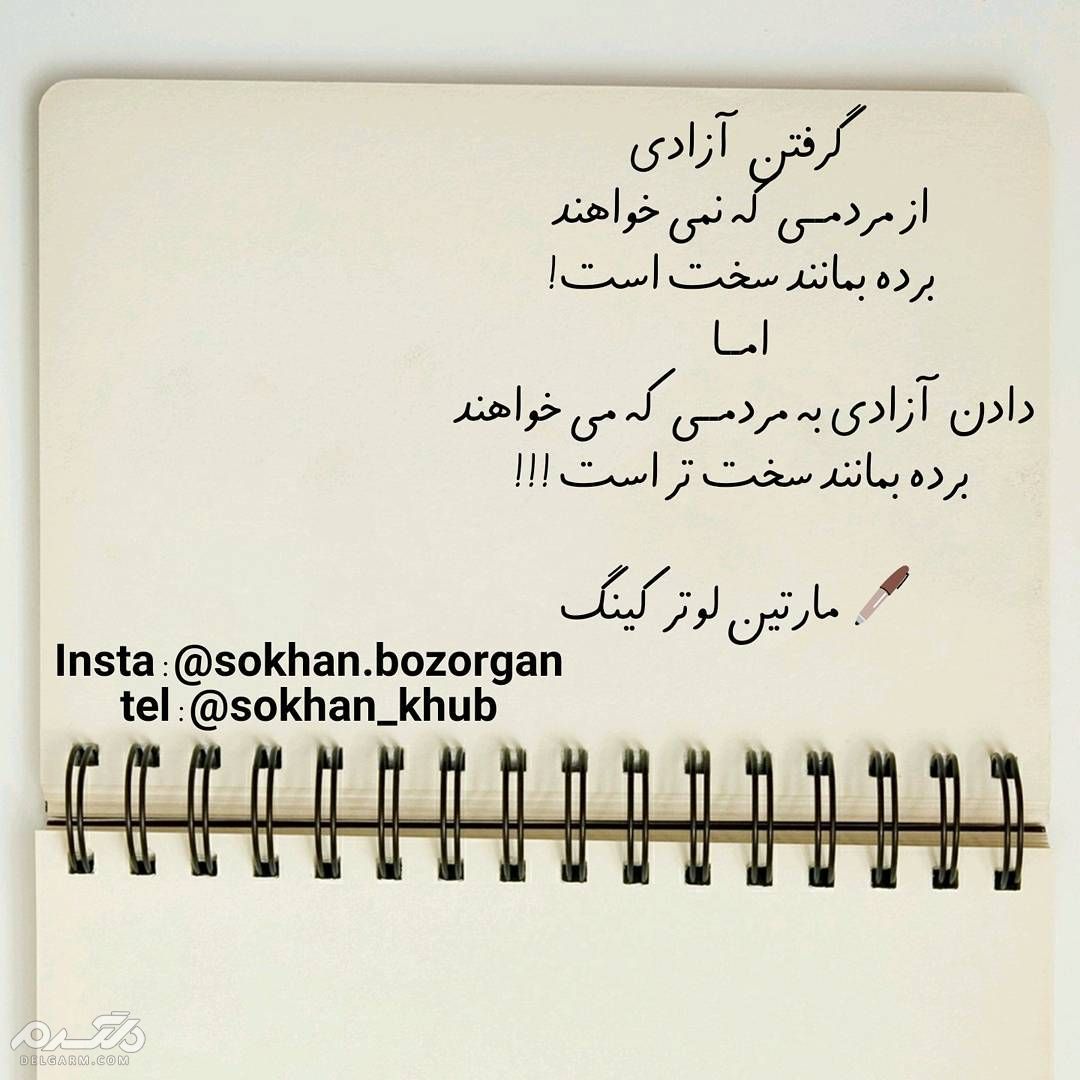 گرفتن آزادی
از مردمــی که نمی خواهند
برده بمانند سخت است!
امــا
دادن آزادی به مردمــی که می خواهند
برده بمانند سخت تر است !!!
مارتین لوتر کینگ
Insta : @sokhan.bozorgan
tel : @sokhan_khub
دلگرم
DELGARM.COM